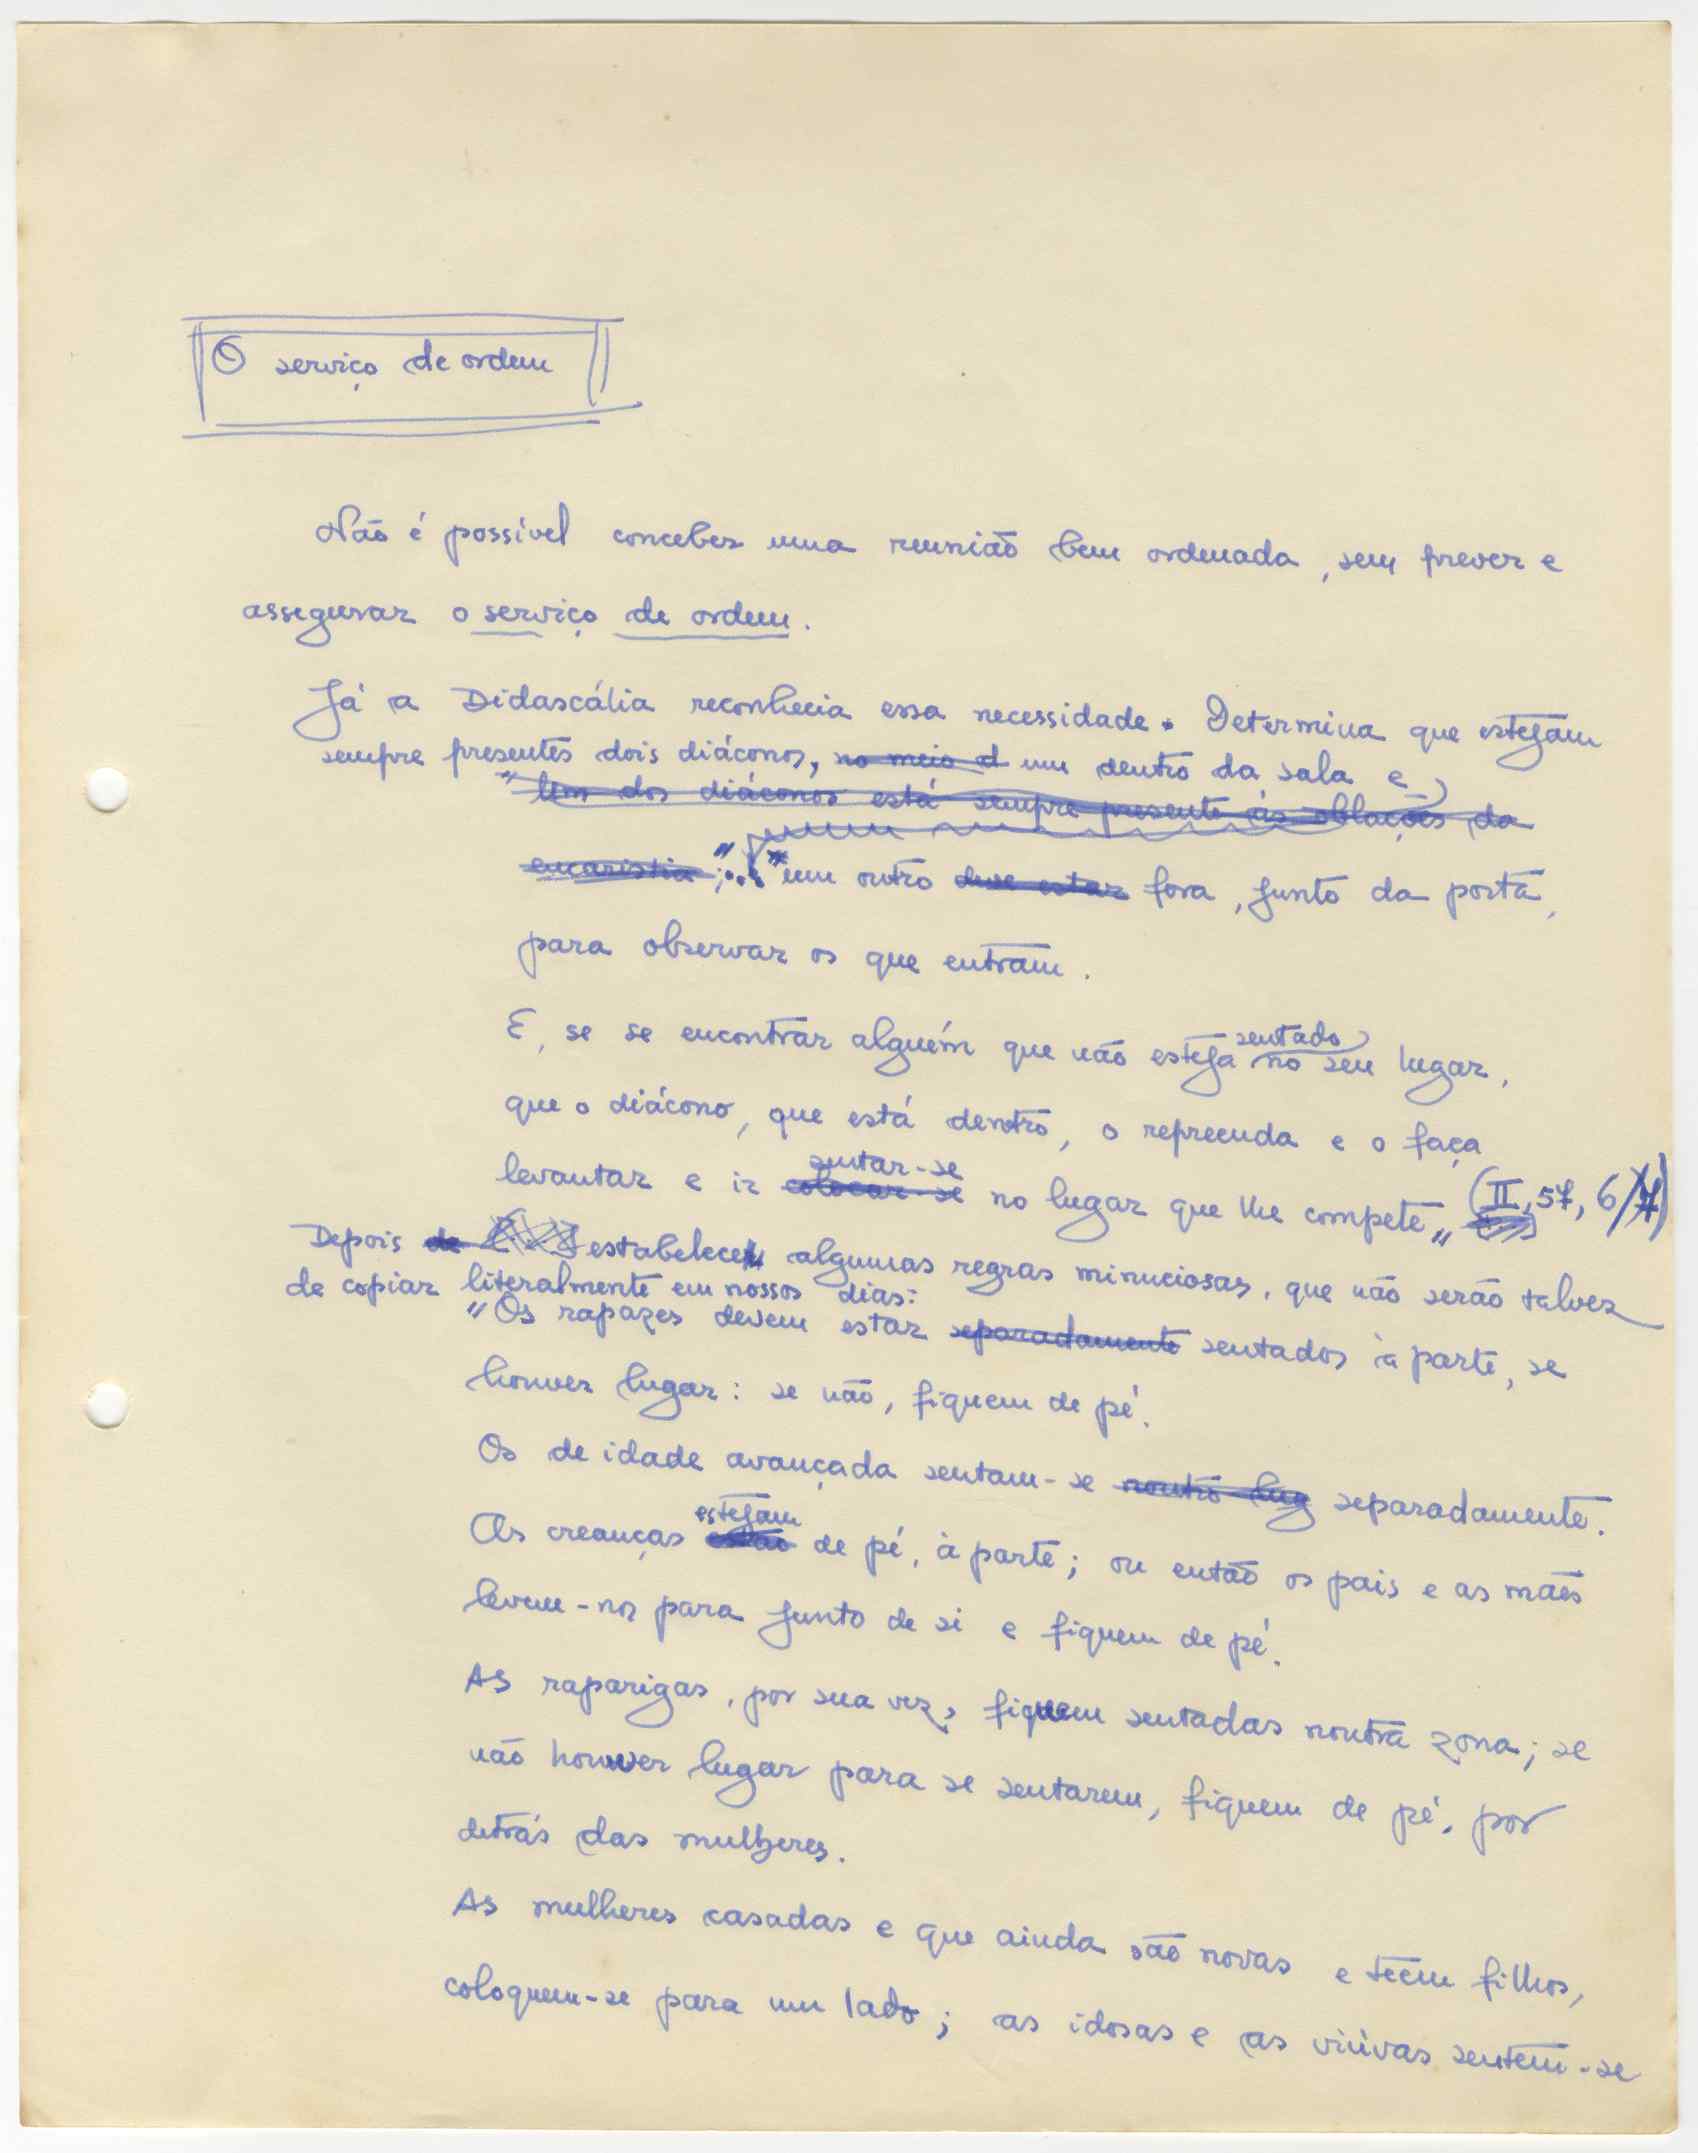 O serviço de ordem
Não é possível conceber uma reunião bem ordenada, sem prever e
assegurar o serviço de ordem.
Já a Didascália reconhecia essa necessidade. Determina que estejam
sempre presentes dois diáconos, no meio d um dentro da sala e
"Um dos diáconos está sempre presente às oblações da
eucaristia;"... "um outro deve estar fora, junto da porta,
para observar os que entram.
E, se se encontrar alguém que não esteja sentado no seu lugar,
que o diácono, que está dentro, o repreenda e o faça
levantar e ir colocar-se sentar-se no lugar que lhe compete" (II, 57, 6/7)
Depois de estabelecer algumas regras minuciosas, que não serão talvez
de copiar literalmente em nossos dias:
"Os rapazes devem estar separadamente sentados à parte, se
houver lugar: se não, fiquem de pé.
Os de idade avançada sentam-se noutro lug separadamente.
As creanças estão estejam de pé, à parte; ou então os pais e as mães
levem-nos para junto de si e fiquem de pé.
As raparigas, por sua vez, fiquem sentadas noutra zona; se
não houver lugar para se sentarem, fiquem de pé, por
detrás das mulheres.
As mulheres casadas e que ainda são novas e teem filhos,
coloquem-se para um lado; as idosas e as viúvas sentem-se